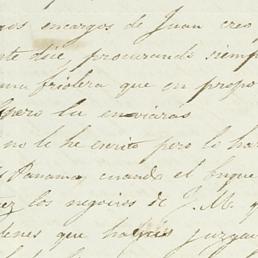 nos encargos de Juan creo
te dice, procurando siemp
ma friolera que en propo
pero la enviaras
no le he escrito pero lo ha
Panama, cuando el buque
ez los negocios de J. M. q
denes que hagais juzga